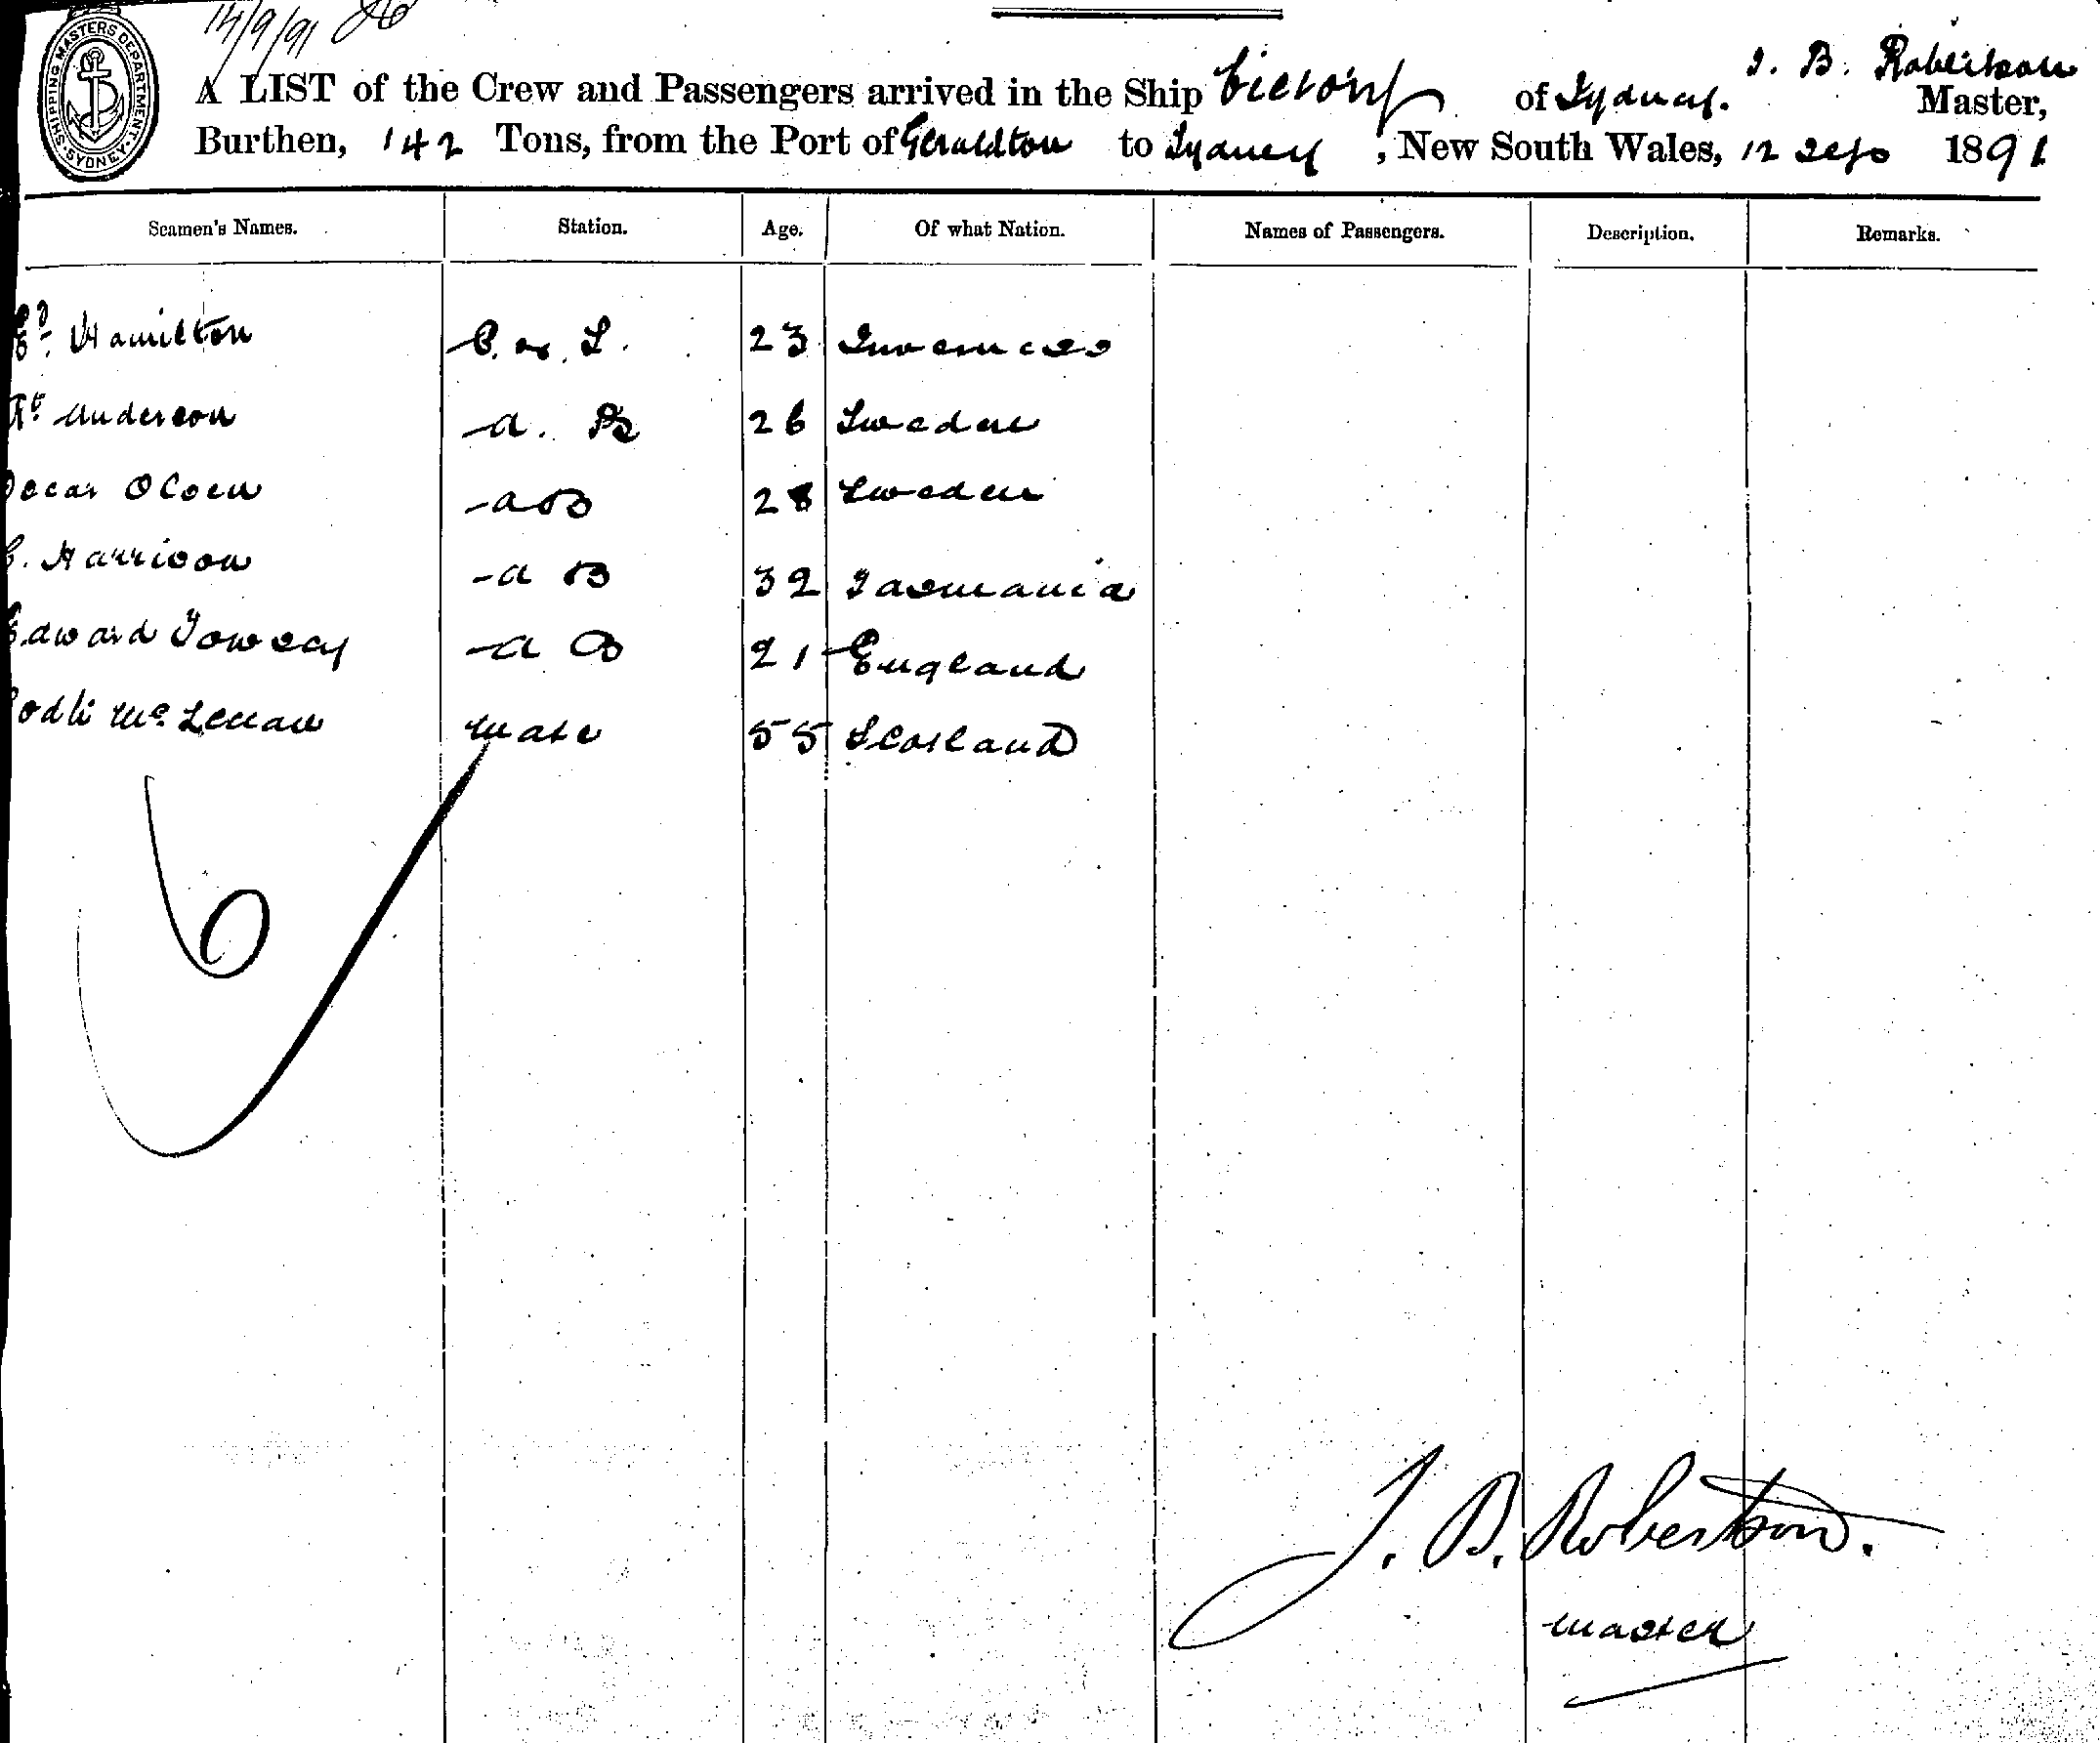 14/9/91
SHIPPING MASTERS DEPARTMENT. SYDNEY.
J. B. Robertson
A LIST of the Crew and Passengers arrived in the Ship Victory of Sydney. Master,
Burthen, 142 Tons, from the Port of Geraldton to Sydney, New South Wales, 12 Sep 1891
Seamen's Names. Station. Age. Of what Nation. Names of Passengers. Description. Remarks.
Hamilton 23 Inverness
Anderson A. B 26 Sweden
Oscar Olsen A B 28 Sweden
Harrison A B 32 Tasmania
Edward Towsey A B 21 England
McLenan Mate 55 Scotland
6
J. B. Robertson.
Master